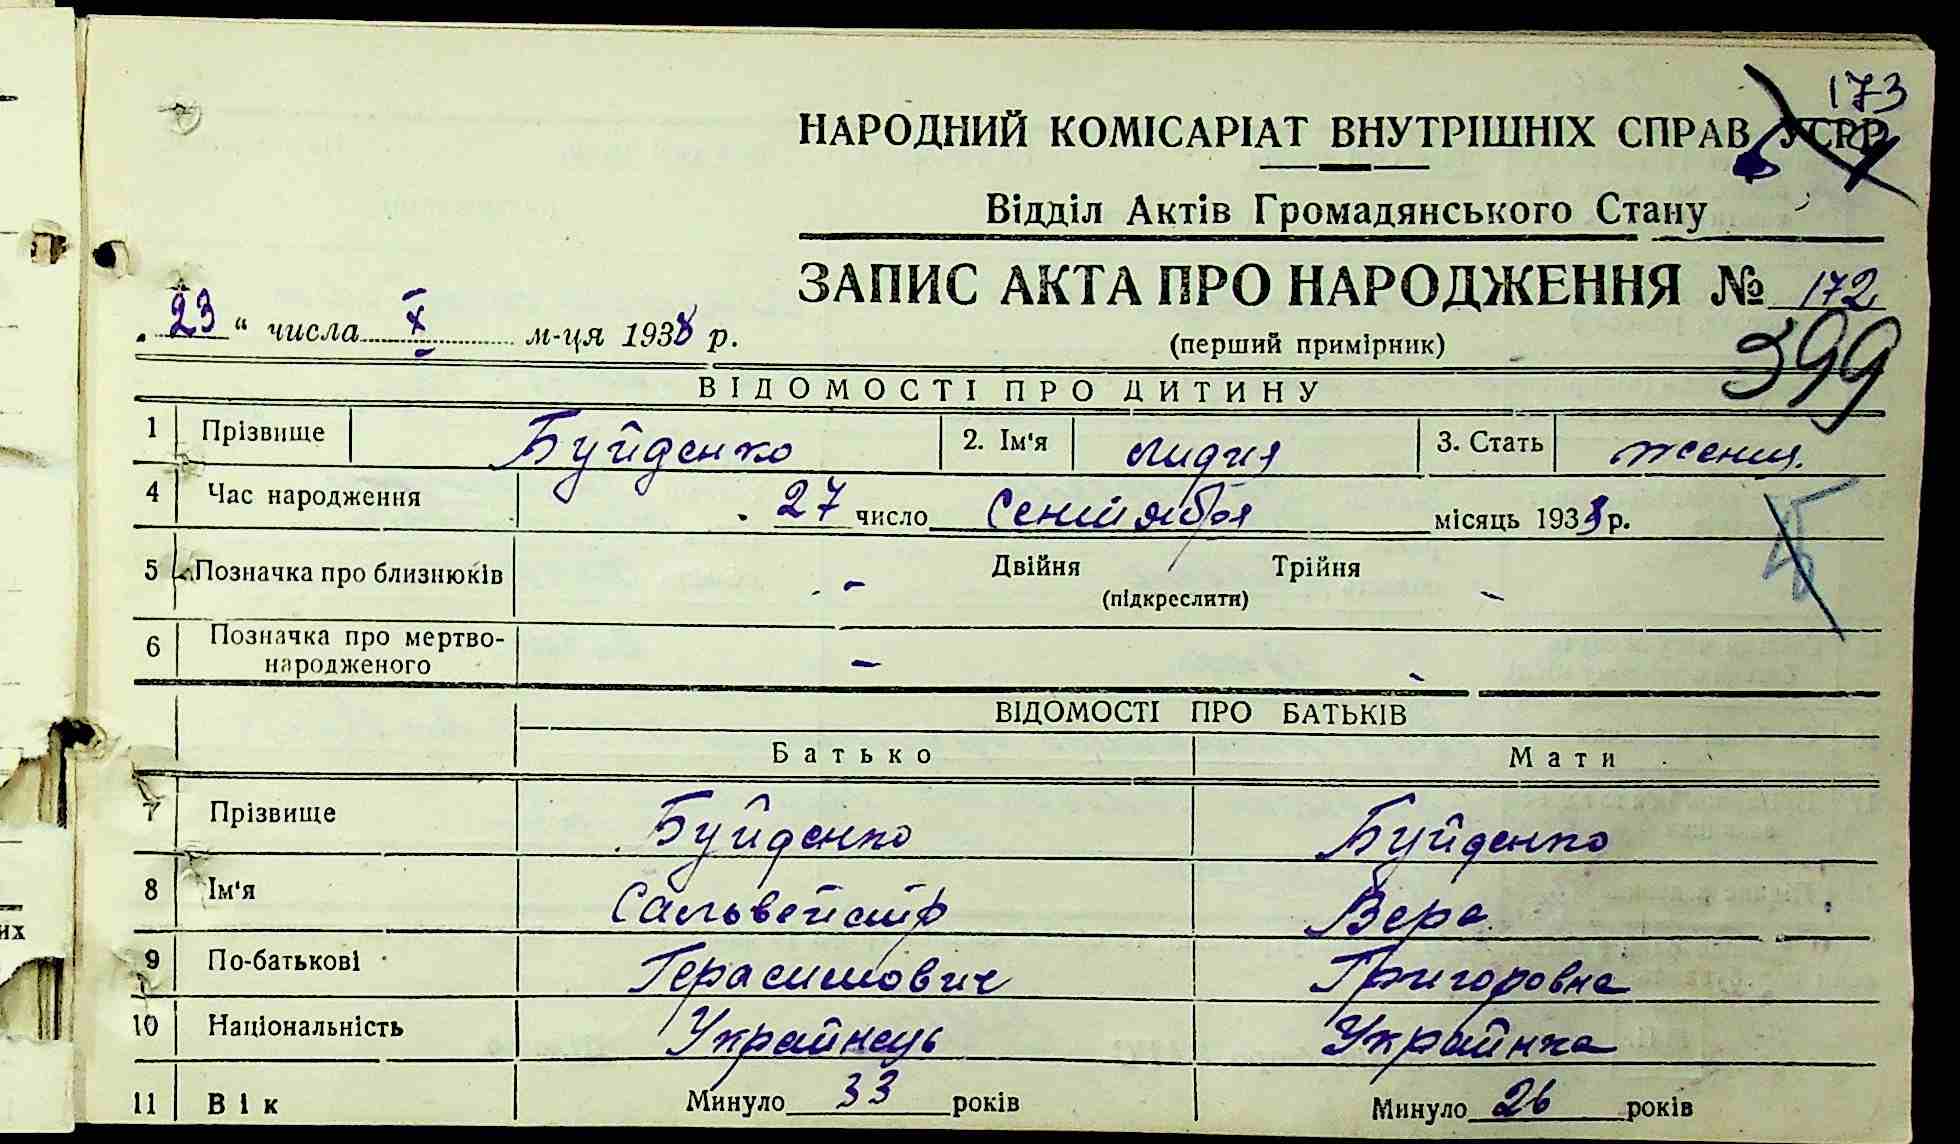 173
НАРОДНИЙ КОМІСАРІАТ ВНУТРІШНІХ СПРАВ УСРР
Відділ Актів Громадянського Стану
ЗАПИС АКТА ПРО НАРОДЖЕННЯ № 172
„23“ числа X м-ця 1938 р.
(перший примірник)
399
ВІДОМОСТІ ПРО ДИТИНУ
1 Прізвище Буйденко 2. Ім'я Лидия 3. Стать женщ.
4 Час народження 27 число Сентября місяць 1938 р.
5 Позначка про близнюків - Двійня Трійня -
(підкреслити)
6 Позначка про мертво-
народженого -
ВІДОМОСТІ ПРО БАТЬКІВ
Батько Мати
7 Прізвище Буйденко Буйденко
8 Ім'я Сальвейстр Вера
9 По-батькові Герасимович Григоровна
их
10 Національність Украйнець Украйнка
11 Вік Минуло 33 років Минуло 26 років